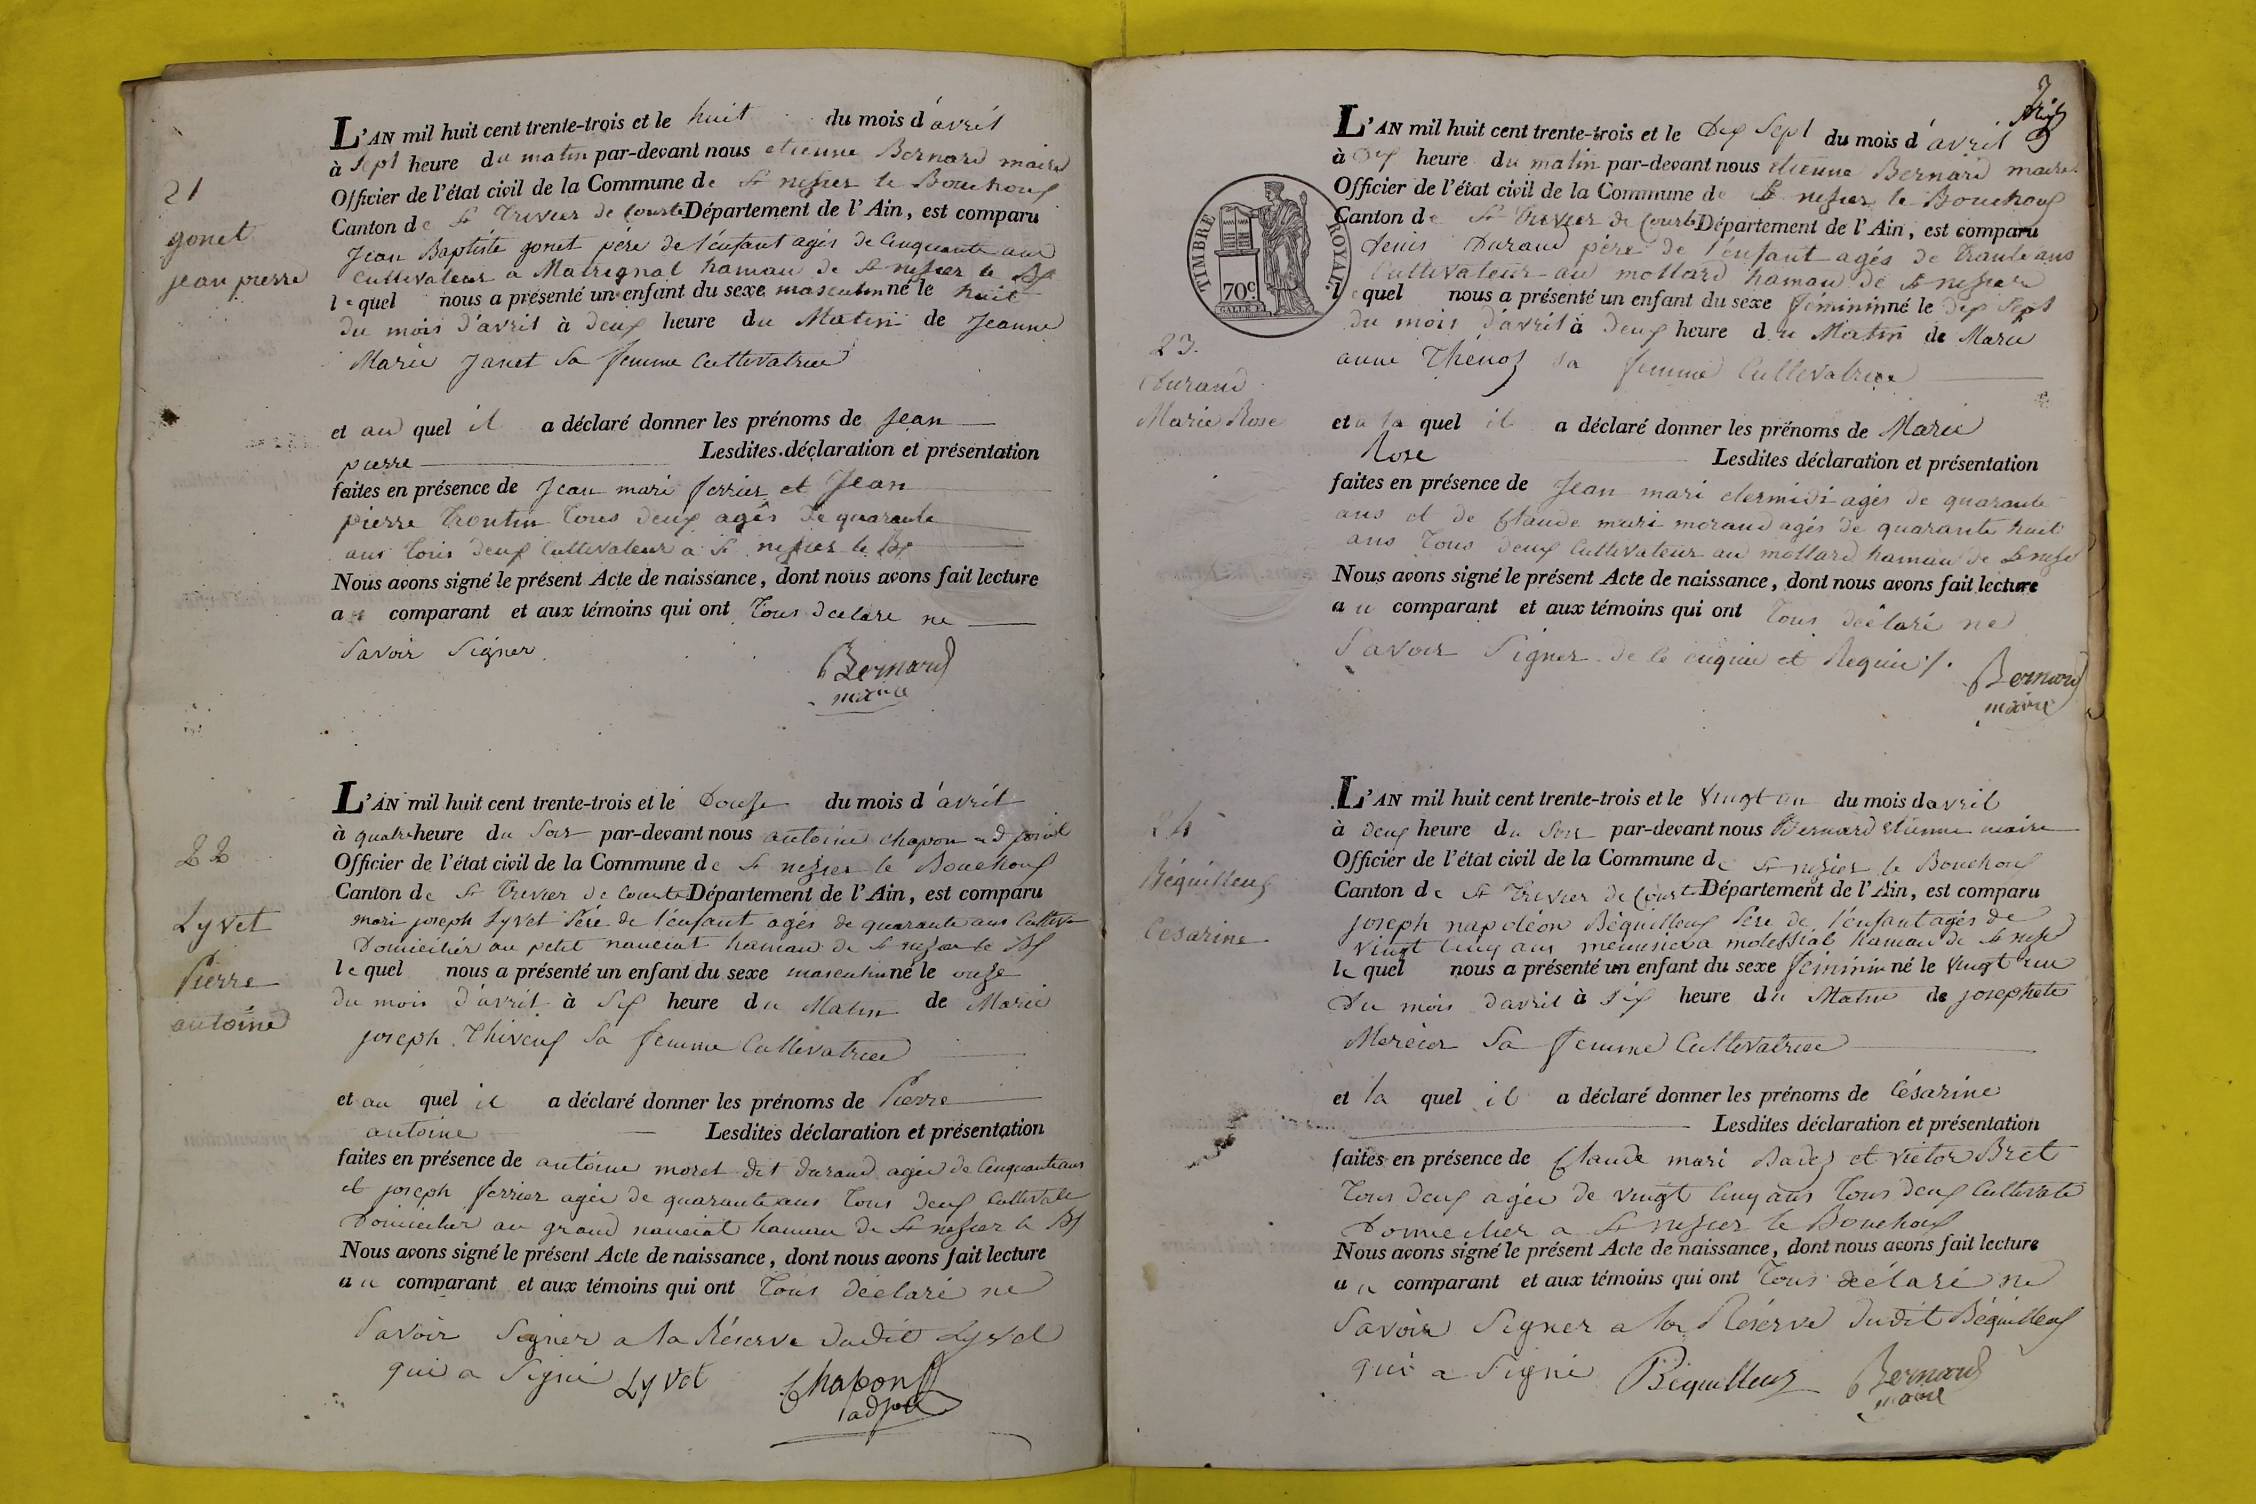 21
gonet
jean pierre
L'AN mil huit cent trente-trois et le huit du mois d'avril
à sept heure du matin par-devant nous etienne Bernard maire
Officier de l'état civil de la Commune de St nesier le Bouchoux
Canton de St Trivier de Courte Département de l'Ain, est comparu
Jean Baptiste gonet père de l'enfant agés de Cinquante ans
Cultivateur a Matrignat hamau de St nesier le Bx
lequel nous a présenté un enfant du sexe masculin né le huit
du mois d'avril à deux heure du Matin de Jeanne
Marie Janet Sa femme Cultivatrice
et au quel il a déclaré donner les prénoms de Jean
pierre Lesdites déclaration et présentation
faites en présence de Jean mari ferrier et Jean
pierre trontin Tous deux agés de quarante
ans Tous deux Cultivateur a St nesier le Bx
Nous avons signé le présent Acte de naissance, dont nous avons fait lecture
au comparant et aux témoins qui ont Tous déclaré ne
Savoir Signer
Bernard
maire
22
Lyvet
Pierre
antoine
L'AN mil huit cent trente-trois et le Douse du mois d'avril
à quatre heure du Soir par-devant nous antoine chapon adjoint
Officier de l'état civil de la Commune de St nesier le Bouchoux
Canton de St Trivier de Courte Département de l'Ain, est comparu
mari joseph Lyvet Père de l'enfant agés de quarante ans Cultiva
Domicilier au petit naveiat hamau de St nesier le Bx
lequel nous a présenté un enfant du sexe masculin né le onze
du mois d'avril à Six heure du Matin de Marie
joseph Thiveux Sa femme Cultivatrice
et au quel il a déclaré donner les prénoms de Pierre
antoine Lesdites déclaration et présentation
faites en présence de antoine moret dit durand agée de Cinquante ans
et joseph ferrier agée de quarante ans Tous deux Cultivate
Domicilier au grand naveiat hamau de St nesier le Bx
Nous avons signé le présent Acte de naissance, dont nous avons fait lecture
au comparant et aux témoins qui ont Tous déclaré ne
Savoir Signer a la Réserve dudit Lyvet
qui a Signé Lyvet Chapon
adjot
TIMBRE ROYAL
70c
23.
Durand
Marie Rose
L'AN mil huit cent trente-trois et le Dix Sept du mois d'avril
à Dix heure du matin par-devant nous etienne Bernard maire
Officier de l'état civil de la Commune de St nesier le Bouchoux
Canton de St Trivier de Courte Département de l'Ain, est comparu
denis Durand père de l'enfant agés de trante ans
Cultivateur au mottard hamau de St nesier
lequel nous a présenté un enfant du sexe féminin né le dix Sept
du mois d'avril à deux heure du Matin de Marie
anne Thénoz Sa femme Cultivatrice
et a la quel il a déclaré donner les prénoms de Marie
Rose Lesdites déclaration et présentation
faites en présence de Jean mari dermidi agés de quarante
ans et de Claude mari morand agés de quarante huit
ans Tous deux Cultivateur au mottard hamau de St nesie
Nous avons signé le présent Acte de naissance, dont nous avons fait lecture
au comparant et aux témoins qui ont Tous déclaré ne
Savoir Signer de le enquie et Requie
Bernard
maire
24
Béquilleux
Césarine
L'AN mil huit cent trente-trois et le Vingt un du mois davril
à deux heure du Soir par-devant nous Bernard etienne maire
Officier de l'état civil de la Commune de St nesier le Bouchoux
Canton de St Trivier de Court Département de l'Ain, est comparu
joseph napoléon Béquilleux Père de l'enfant agés de
vingt Cinq ans menusier a molessiat hamau de St nesie
lequel nous a présenté un enfant du sexe féminin né le Vingt un
Du mois davril à Six heure du Matin de josephete
Mercier Sa femme Cultivatrice
et la quel il a déclaré donner les prénoms de Césarine
Lesdites déclaration et présentation
faites en présence de Claude mari Badez et Victor Bret
Tous deux agée de vingt Cinq ans Tous deux Cultivate
Domicilier a St nesier le Bouchoux
Nous avons signé le présent Acte de naissance, dont nous avons fait lecture
au comparant et aux témoins qui ont Tous déclaré ne
Savoir Signer a la Réserve dudit Béquilleux
qui a Signé Béquilleux Bernard
maire